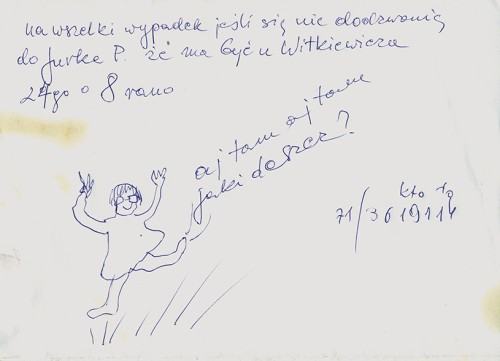 na wszelki wypadek jeśli się nie dodzwonię
do Jurka P. że ma być u Witkiewicza
24go o 8 rano
oj tam oj tam
jaki deszcz?
kto to
71/3619114